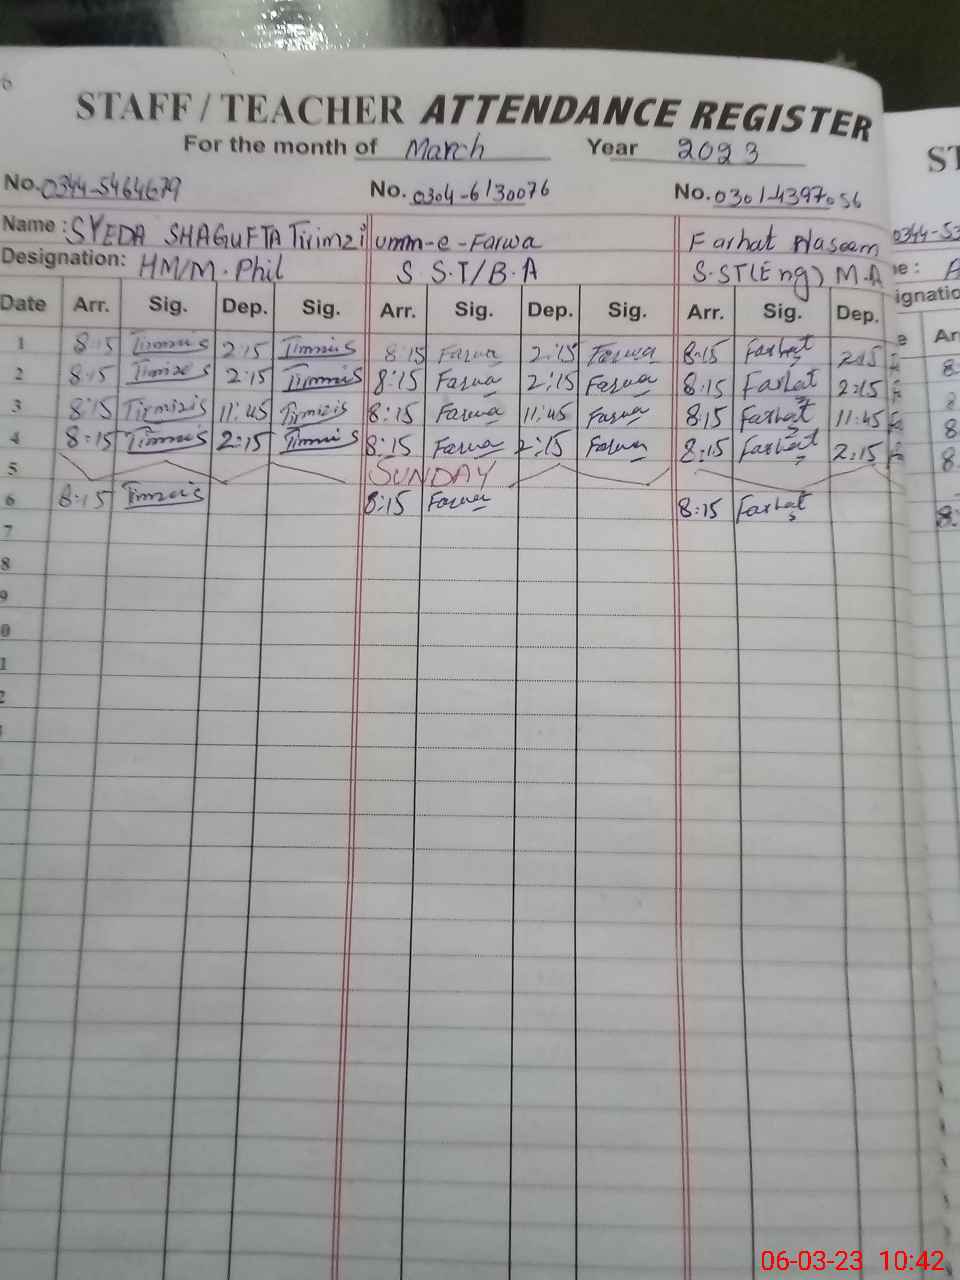 STAFF / TEACHER ATTENDANCE REGISTER
For the month of March Year 2023
No. 0344-5464679 No. 0304-6130076 No. 0301-4397056
Name : SYEDA SHAGUFTA Tirimzi umm-e-Farwa Farhat Naseem
Designation: HM/M.Phil S.S.T/B.A S.ST(Eng) M.A
Date Arr. Sig. Dep. Sig. Arr. Sig. Dep. Sig. Arr. Sig. Dep.
1 8:15 2:15 8:15 Farwa 2:15 Farwa 8:15 Farhat 2:15
2 8:15 2:15 8:15 Farwa 2:15 Farwa 8:15 Farhat 2:15
3 8:15 Tirmizis 11:45 Tirmizis 8:15 Farwa 11:45 Farwa 8:15 Farhat 11:45
4 8:15 2:15 8:15 Farwa 2:15 Farwa 8:15 Farhat 2:15
5 SUNDAY
6 8:15 8:15 Farwa 8:15 Farhat
7
8
9
0
1
2
ST
0344-53
ignatio
06-03-23 10:42